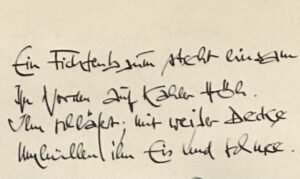 Ein Fichtenbaum steht einsam
Im Norden auf kahler Höh.
Ihn schläfert; mit weißer Decke
Umhüllen ihn Eis und Schnee.